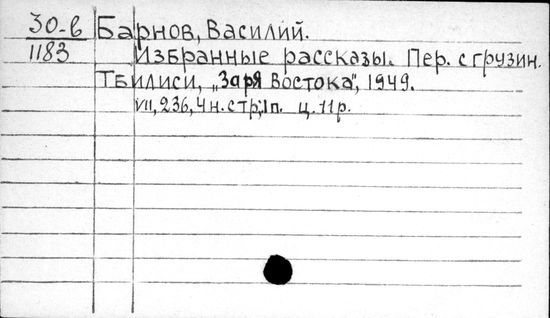 30-в Барнов, Василий.
1183 Избранные рассказы. Пер. с грузин.
Тбилиси, „Заря Востока", 1949.
VII, 236, 4 н. стр; 1п. ц. 11 р.